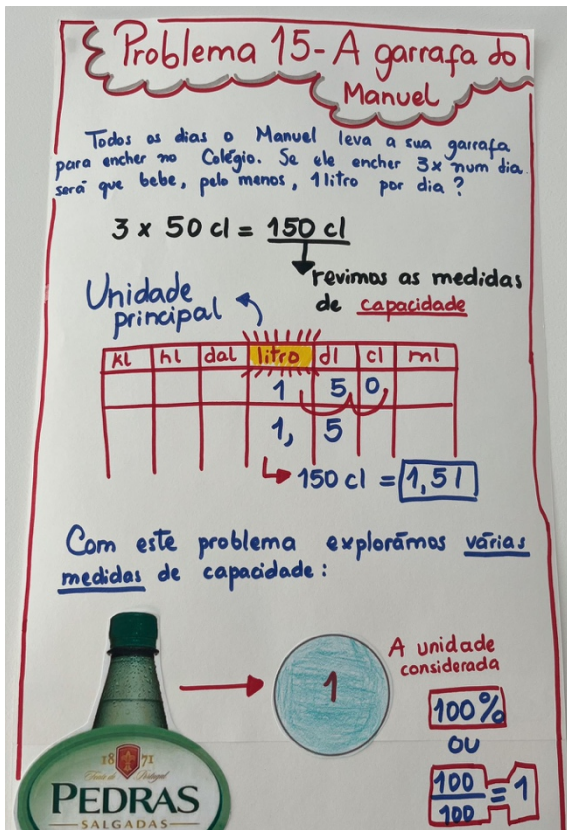 Problema 15 - A garrafa do
Manuel
Todos os dias o Manuel leva a sua garrafa
para encher no Colégio. Se ele encher 3x num dia
será que bebe, pelo menos, 1 litro por dia?
3 x 50 cl = 150 cl
revimos as medidas
de capacidade
Unidade
principal
kl hl dal litro dl cl ml
1 5 0
1, 5
150 cl = 1,5 l
Com este problema explorámos várias
medidas de capacidade:
1
A unidade
considerada
100%
ou
100/100 = 1
18 71
PEDRAS
SALGADAS